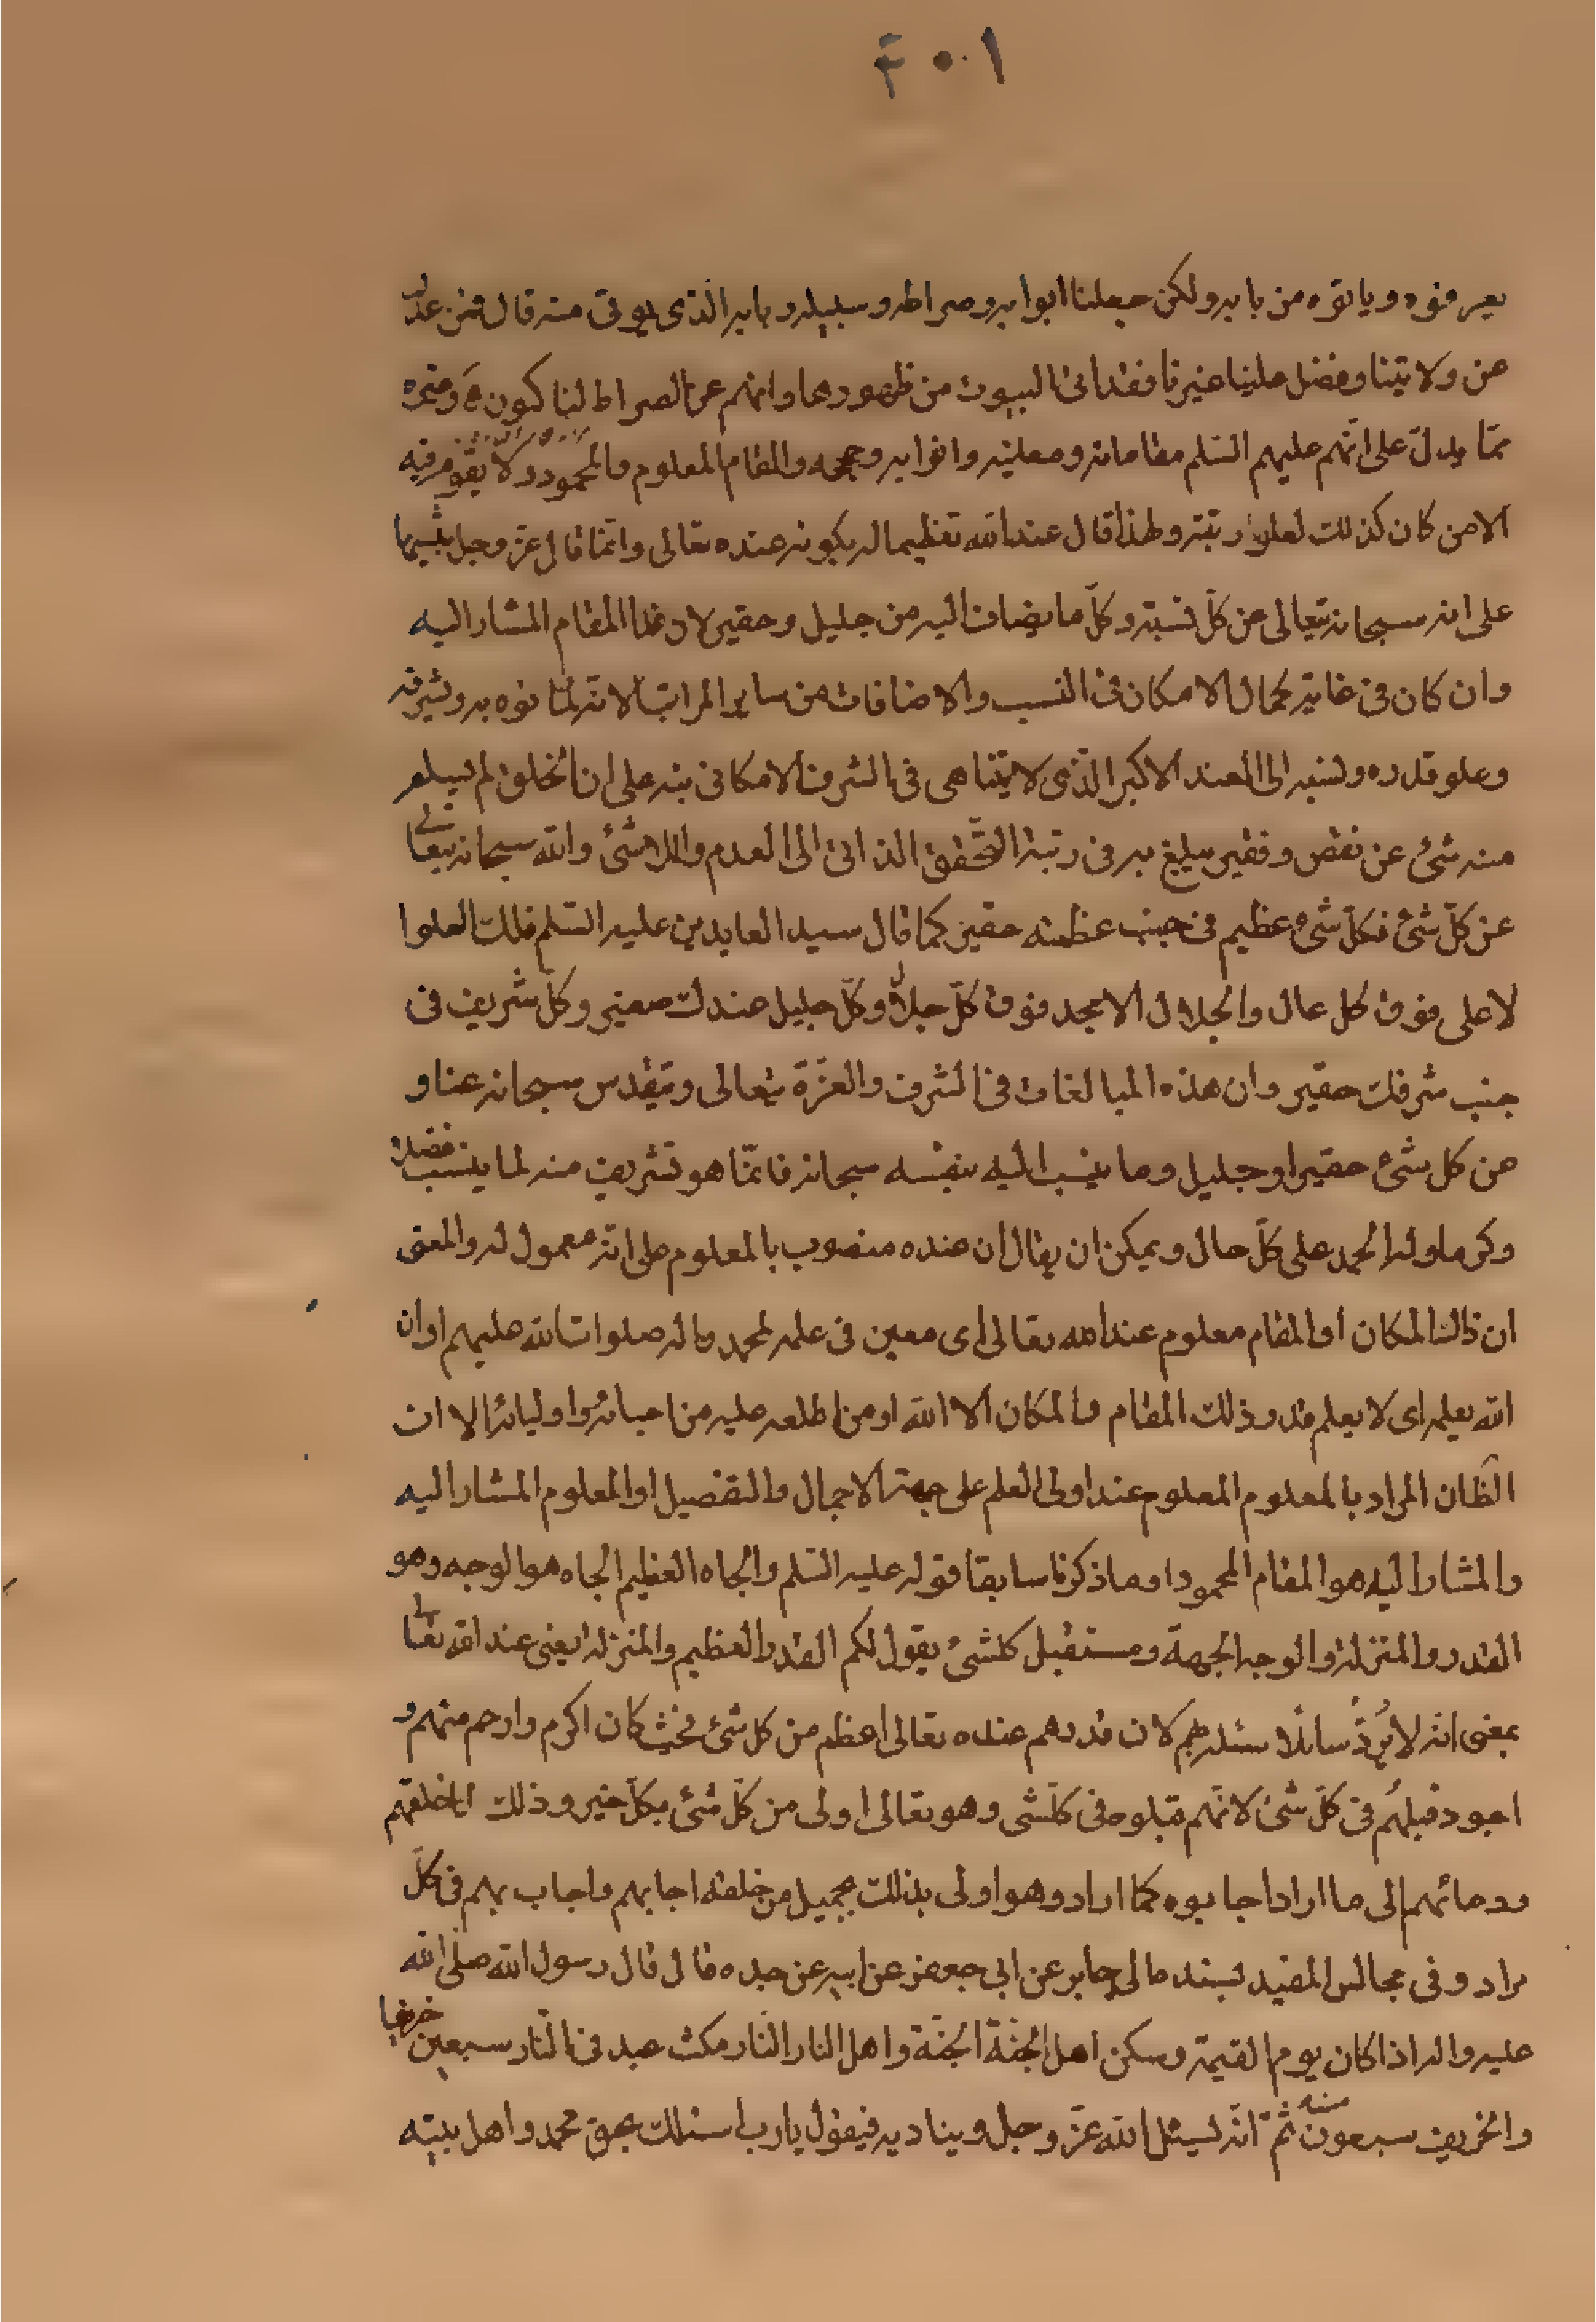 ١٠٠٤
يعرفوه وياتوه من بابه ولكن جعلنا ابوابه وصراطه وسبيله وبابه الّذى يوتى منه قال فمن عدل
عن ولايتنا وفضل علينا غيرنا فقد اتى البيوت من ظهورها وانهم عن الصراط لناكبون ه وغيره
ممّا يدلّ على انّهم عليهم السّلم مقاماته ومعانيه وابوابه وحججه والمقام المعلوم والمحمود ولا يقوم فيه
الا من كان كذلك لعلو رتبته ولهذا قال عند الله تعظيما له بكونه عنده تعالى وانّما قال عزّ وجل تنبيها
على انه سبحانه يتعالى عن كلّ نسبته وكلّ ما يضاف اليه من جليل وحقير لان هذا المقام المشار اليه
وان كان فى غاية كمال الامكان فى النسب والاضافات من ساير المراتب الا انّه لمّا نوه به وبشرفه
وعلو قدره ونسبه الى العند الاكبر الّذى لا يتناهى فى الشرف الامكانى نبه على ان الخلق لم يسلم
منه شئ عن نقص وفقر يبلغ به فى رتبة التّحقق الذاتى الى العدم واللاشئ والله سبحانه يتعالى
عن كلّ شئ فكلّ شئ عظيم فى جنب عظمته حقير كما قال سيد العابدين عليه السّلم فلك العلو ا
لاعلى فوق كل عال والجلال الامجد فوق كلّ جلال وكلّ جليل عندك صغير وكلّ شريف فى
جنب شرفك حقير وان هذه المبالغات فى الشرف والعزّة يتعالى ويتقدس سبحانه عنها و
عن كل شئ حقير او جليل وما ينسب اليه بنفسه سبحانه فانّما هو تشريف منه لما ينسب فضلا
وكرما وله الحمد على كلّ حال ويمكن ان يقال ان عنده منصوب بالمعلوم على انّه معمول له والمعنى
ان ذلك المكان او المقام معلوم عند الله تعالى اى معين فى علمه لمحمد واله صلوات الله عليهم او ان
الله يعلمه اى لا يعلم قدر ذلك المقام والمكان الا الله او من اطلعه عليه من احبائه واوليائه الا ان
الظّان المراد بالمعلوم المعلوم عند اولى العلم على جهة الاجمال والتفصيل او المعلوم المشار اليه
والمشار اليه هو المقام المحمود او ما ذكرنا سابقا قوله عليه السّلم والجاه العظيم الجاه هو الوجه وهو
القدر والمنزلة والوجه الجهة ومستقبل كلشئ يقول لكم القدر العظيم والمنزلة يعنى عند الله تعالى
بمعنى انّه لا يُردّ سائلًا سئله بهم لان قدرهم عنده تعالى اعظم من كل شئ بحيث كان اكرم وارحم منهم و
اجود قبلهُم فى كلّ شئ لانّهم قبلوه فى كلّشى وهو تعالى اولى من كلّ شئ بكلّ خير وذلك لما خلقهم
ودعائهم الى ما اراد اجابوه كما اراد وهو اولى بذلك بجميل من خلقه اجابهم واجاب بهم فى كلّ
مراد وفى مجالس المفيد بسنده الى جابر عن ابى جعفر عن ابيه عن جده قال قال رسول الله صلى الله
عليه واله اذا كان يوم القيمة وسكن اهل الجنّة الجنّة واهل النار النّار مكث عبد فى النّار سبعين خريفا
والخريف سبعون سنه ثمّ انّه ليسئل الله عزّ وجل ويناديه فيقول يا رب اسئلك بحق محمد واهل بيته